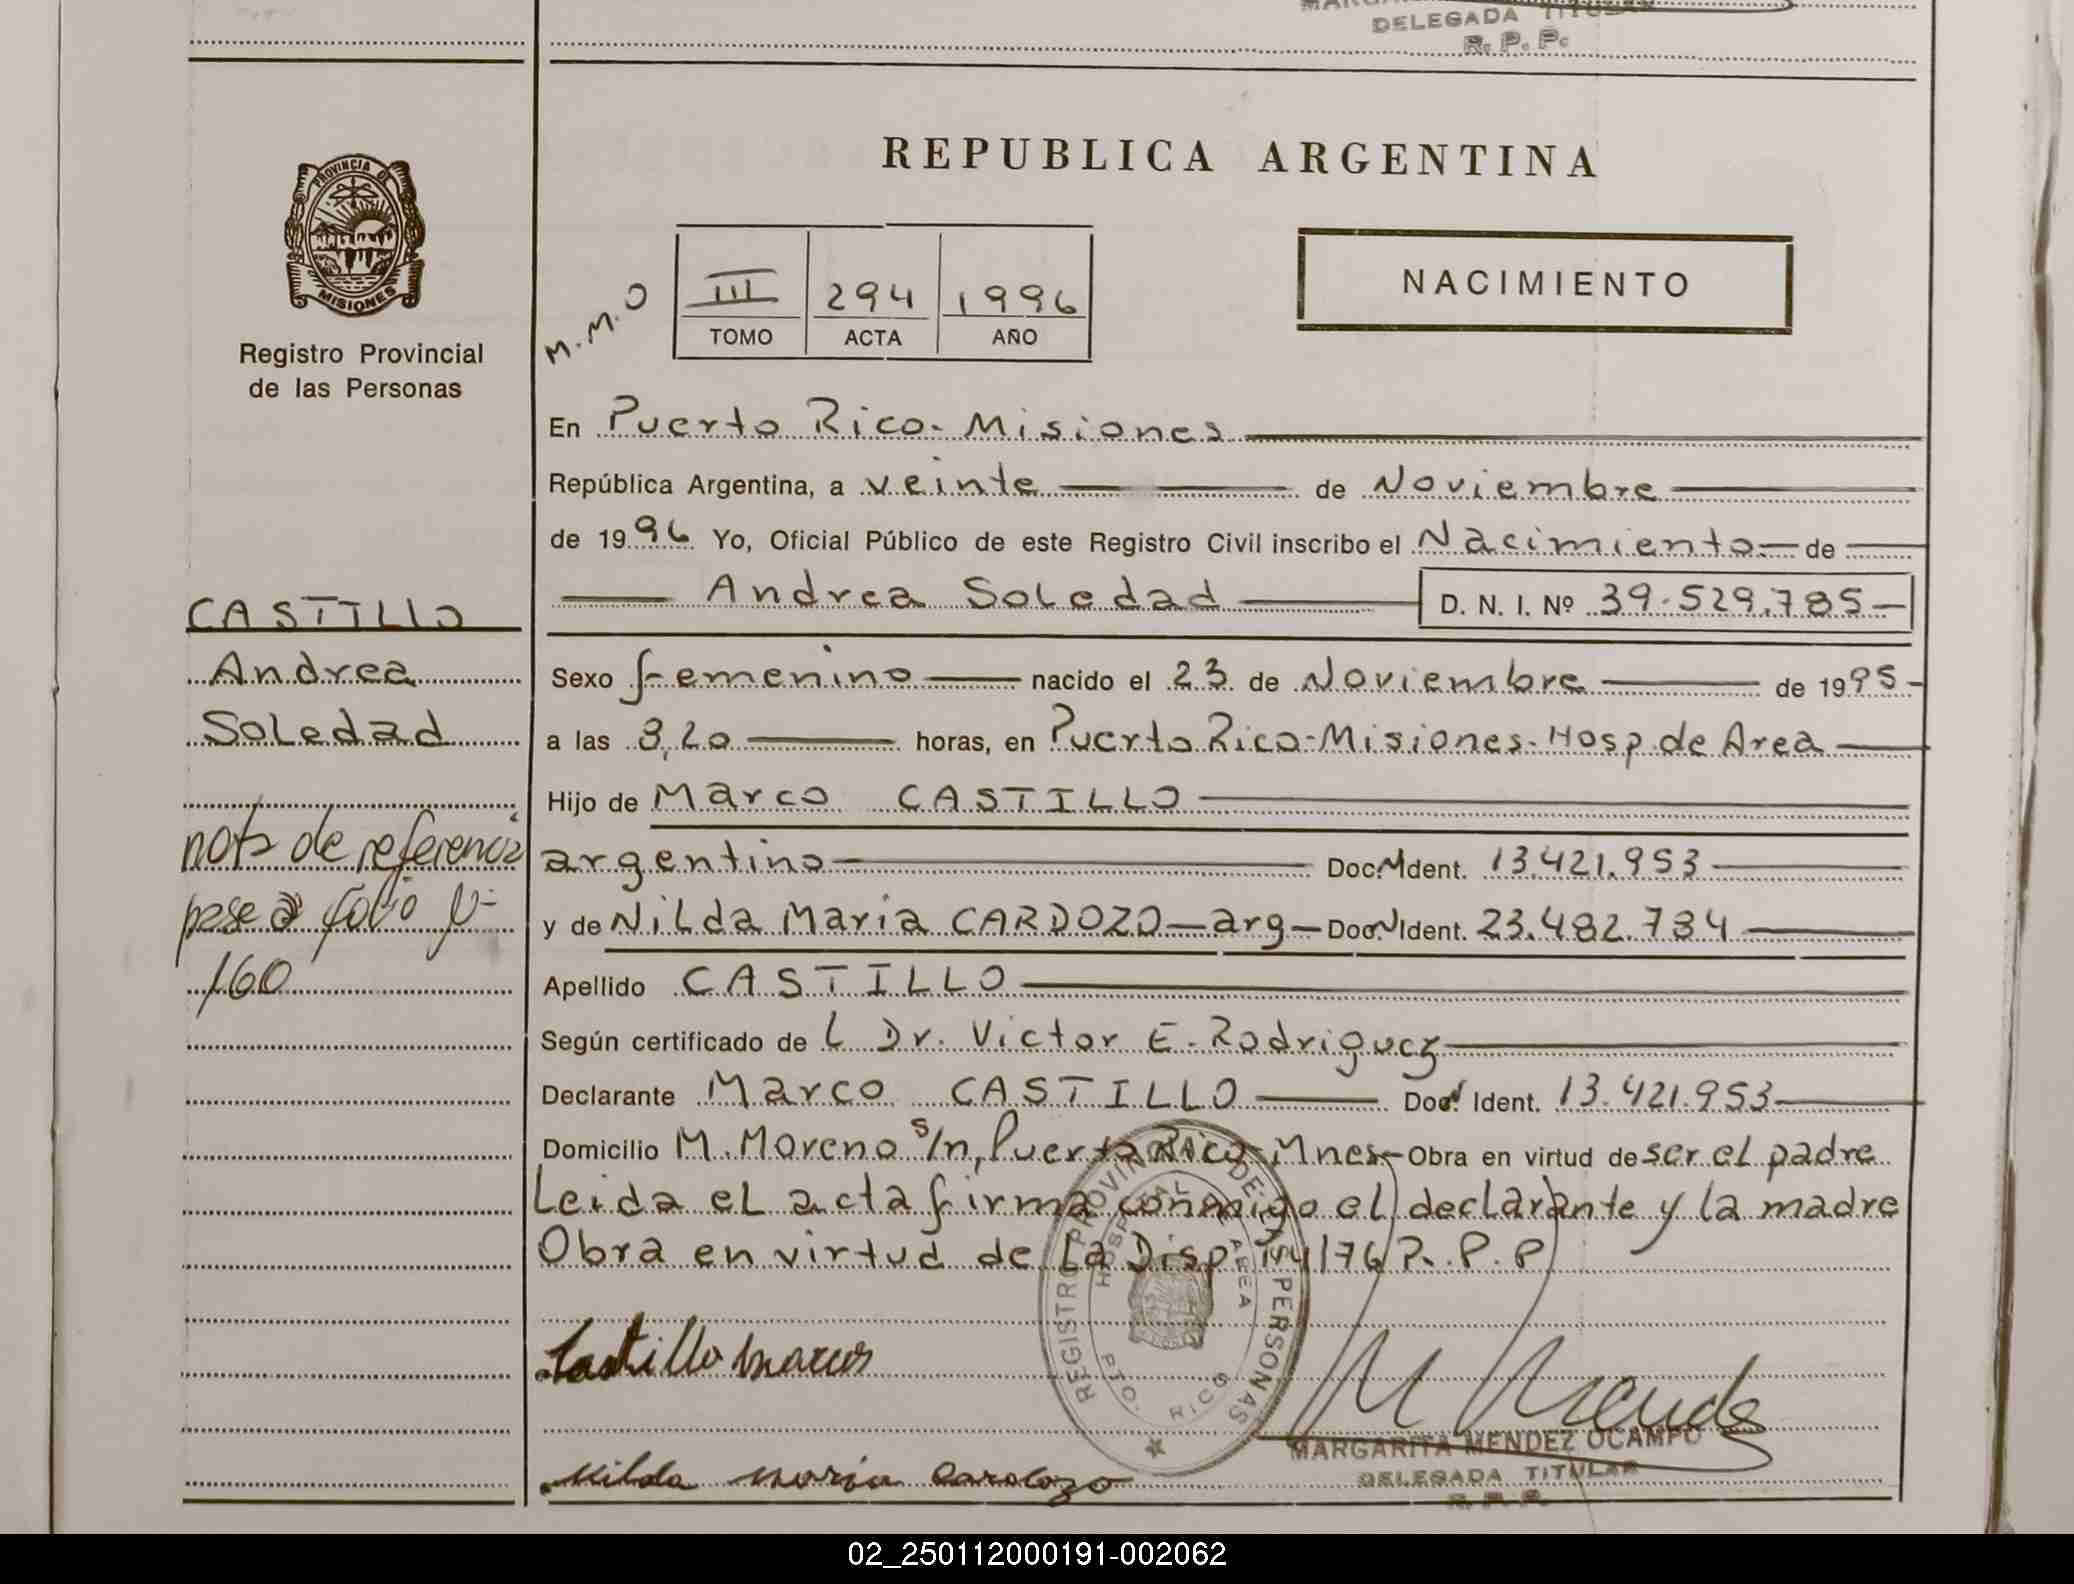 DELEGADA TITULAR
R. P. P.
PROVINCIA DE
MISIONES
Registro Provincial
de las Personas
REPUBLICA ARGENTINA
NACIMIENTO
M.M.O
III 294 1996
TOMO ACTA AÑO
En Puerto Rico - Misiones
República Argentina, a veinte de Noviembre
de 1996 Yo, Oficial Público de este Registro Civil inscribo el Nacimiento de
Andrea Soledad D. N. I. Nº 39.529.785
CASTILLO
Andrea
Soledad
Sexo femenino nacido el 23 de Noviembre de 1995
a las 8,20 horas, en Puerto Rico - Misiones - Hosp. de Area
Hijo de Marco CASTILLO
argentino Doc. N Ident. 13.421.953
y de Nilda Maria CARDOZO - arg - Doc. N Ident. 23.482.784
nota de referencia
pase a folio Nº
160
Apellido CASTILLO
Según certificado de L Dr. Victor E. Rodriguez
Declarante Marco CASTILLO Doc. Ident. 13.421.953
Domicilio M. Moreno s/n, Puerto Rico - Mnes - Obra en virtud de ser el padre
Leida el acta firma conmigo el declarante y la madre
Obra en virtud de La Disp 154/76 R.P.P
REGISTRO PROVINCIAL DE LAS PERSONAS
HOSPITAL DE AREA
PTO. RICO
Castillo Marcos
MARGARITA MENDEZ OCAMPO
DELEGADA TITULAR
R. P. P.
Nilda Maria Cardozo
02_250112000191-002062